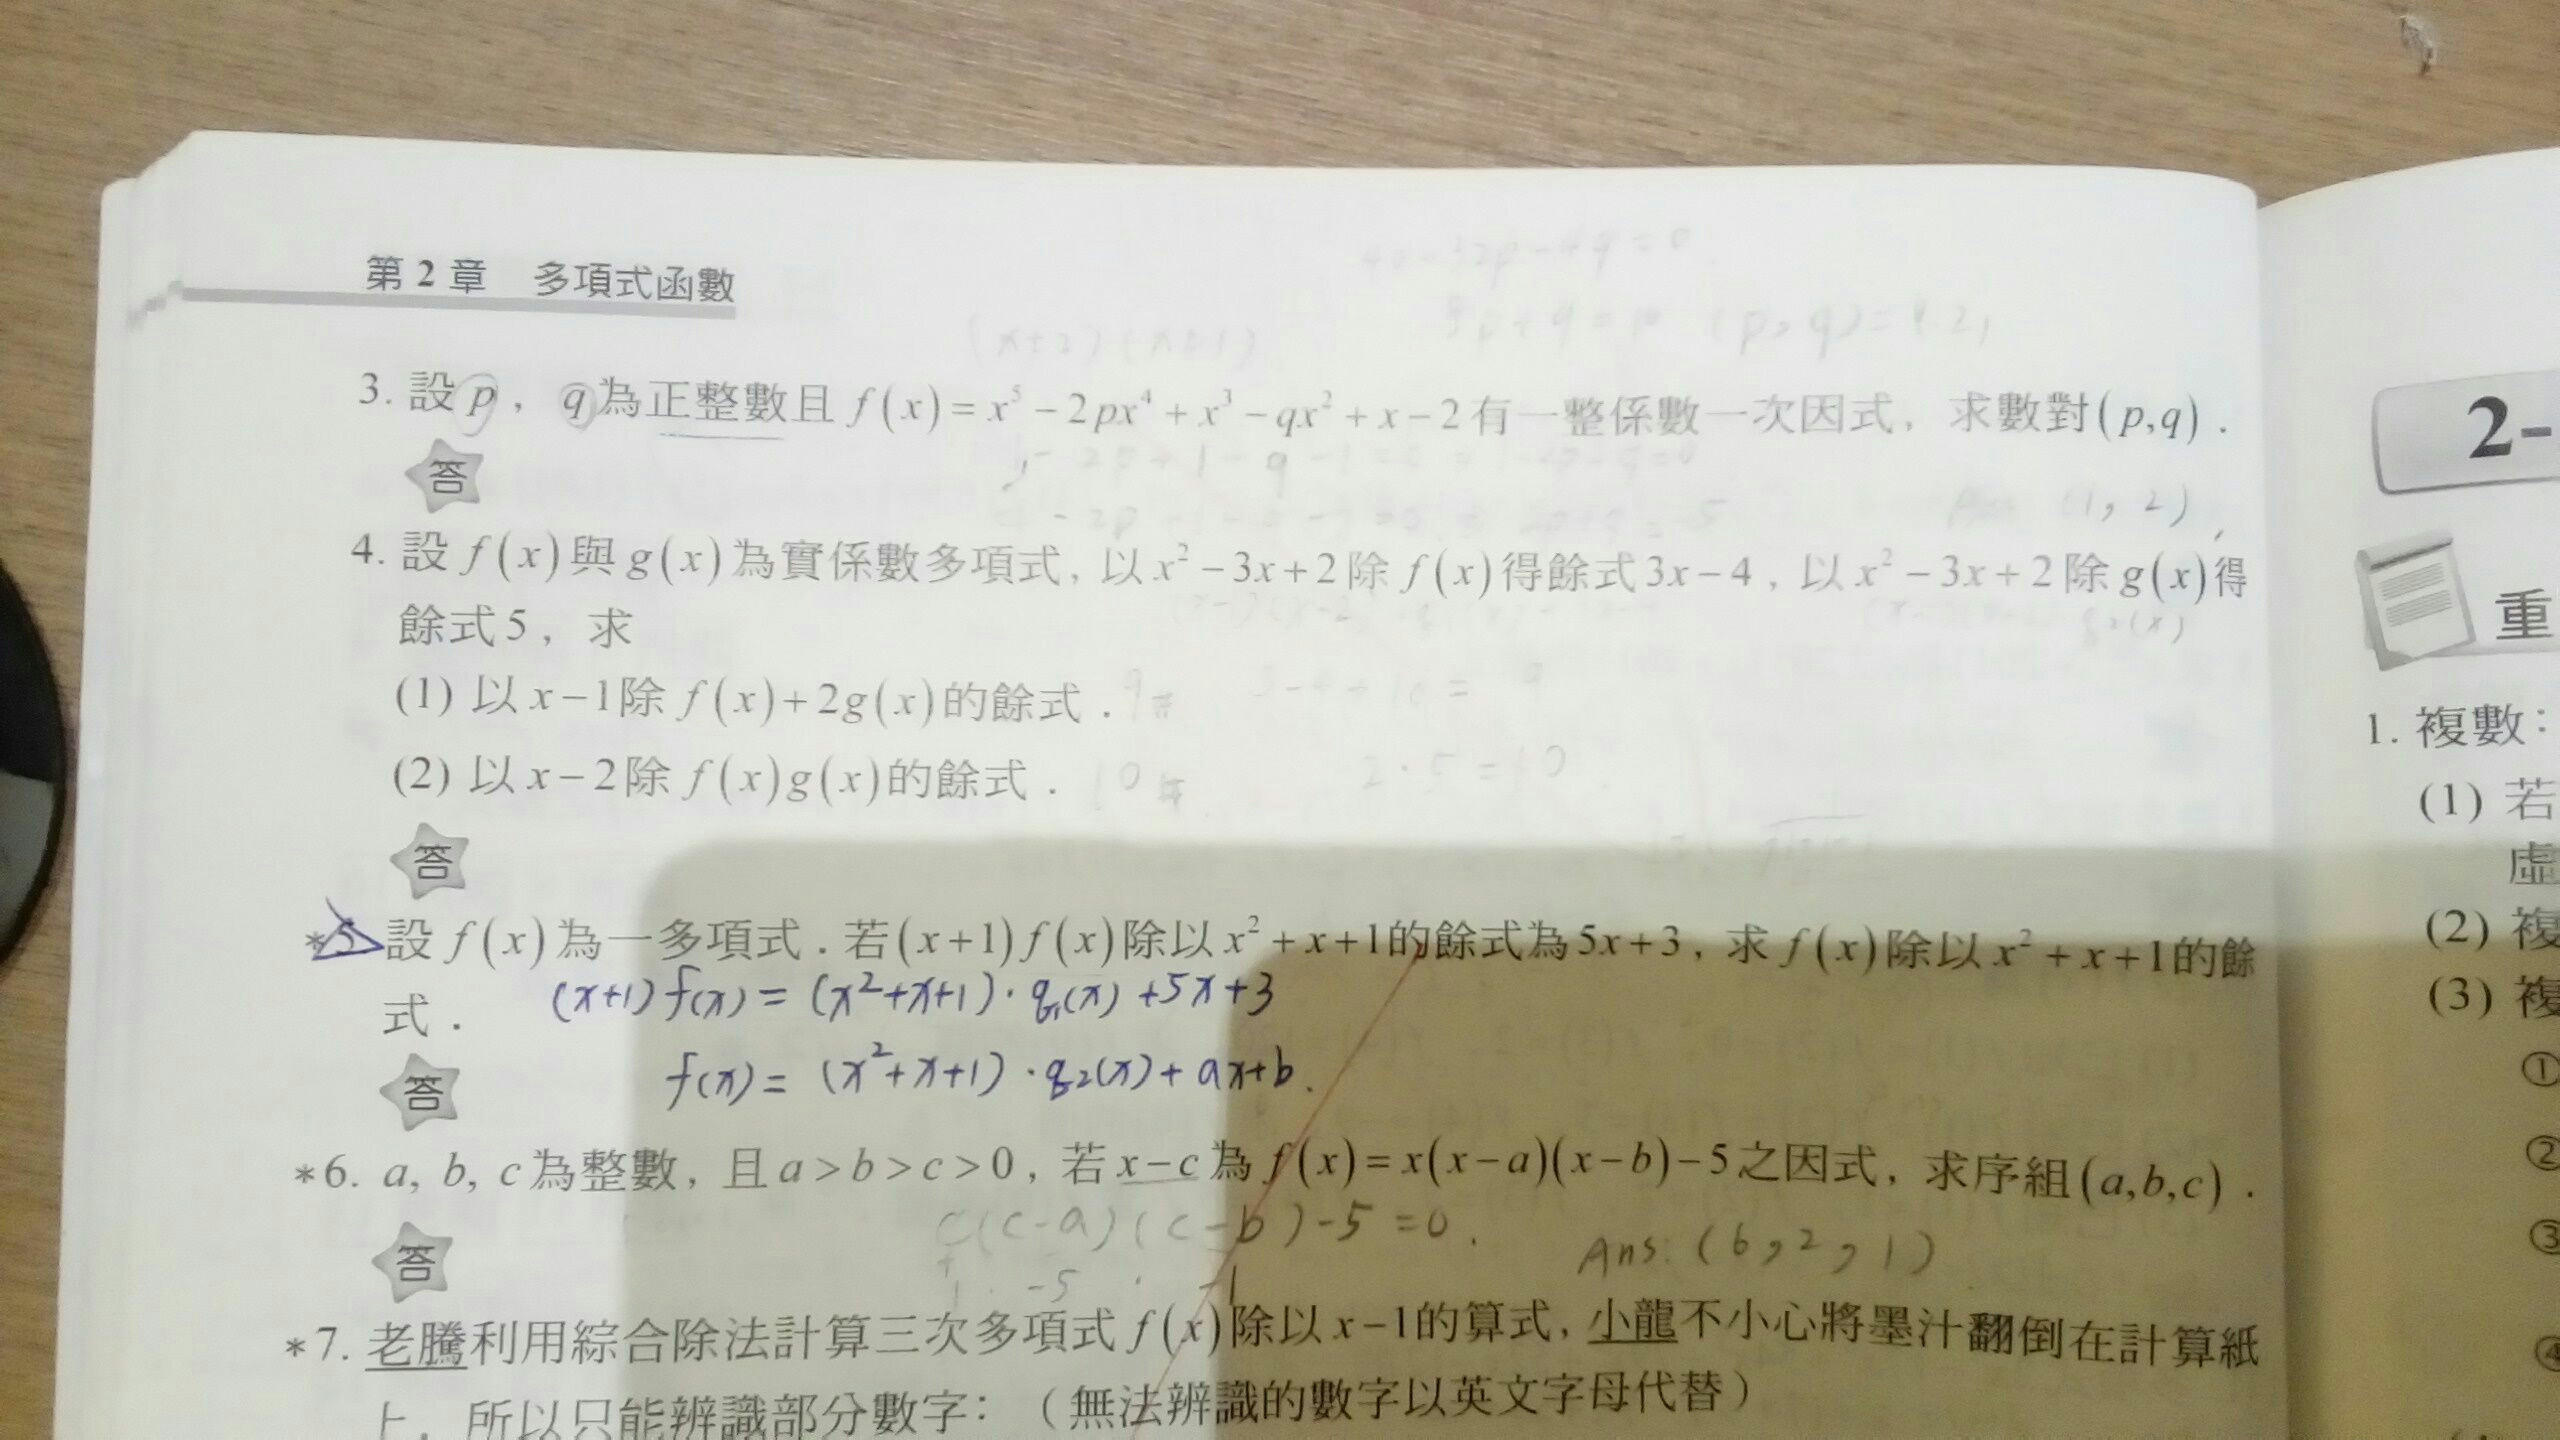 第2章 多項式函數
(x+2)(x+1)
3. 設p，q為正整數且f(x)=x⁵−2px⁴+x³−qx²+x−2有一整係數一次因式，求數對(p,q)．
答
(1, 2)
4. 設f(x)與g(x)為實係數多項式，以x²−3x+2除f(x)得餘式3x−4，以x²−3x+2除g(x)得
餘式5，求
(1) 以x−1除f(x)+2g(x)的餘式． 9# 3-4+10 = 9
(2) 以x−2除f(x)g(x)的餘式． 10# 2·5=10
答
*5. 設f(x)為一多項式．若(x+1)f(x)除以x²+x+1的餘式為5x+3，求f(x)除以x²+x+1的餘
式． (x+1)f(x) = (x²+x+1)·q₁(x)+5x+3
答 f(x) = (x²+x+1)·q₂(x)+ax+b.
*6. a, b, c為整數，且a>b>c>0，若x−c為f(x)=x(x−a)(x−b)−5之因式，求序組(a,b,c)．
c(c-a)(c-b)-5=0.
答 Ans:(6,2,1)
1 · -5 · -1
*7. 老騰利用綜合除法計算三次多項式f(x)除以x−1的算式，小龍不小心將墨汁翻倒在計算紙
上，所以只能辨識部分數字：（無法辨識的數字以英文字母代替）
2-
重
1. 複數：
(1) 若
虛
(2) 複
(3) 複
①
②
③
④